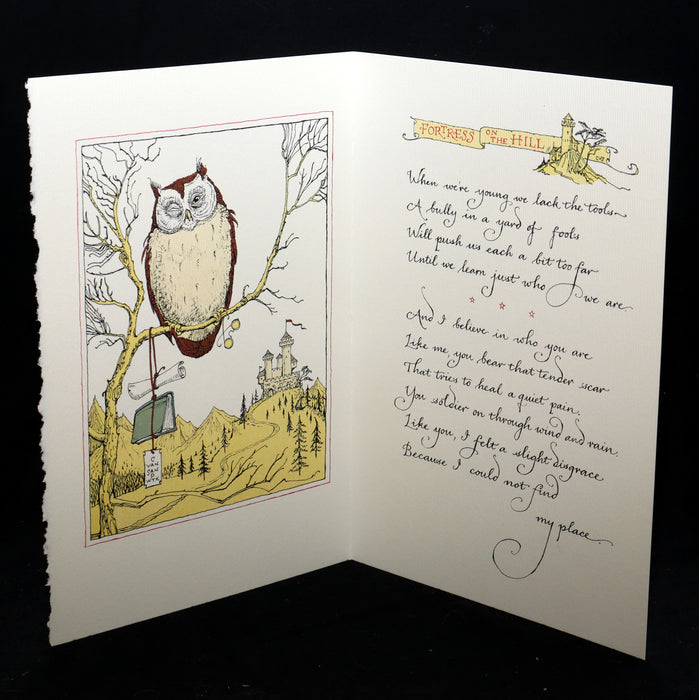 FORTRESS ON THE HILL
When we're young we lack the tools
A bully in a yard of fools
Will push us each a bit too far
Until we learn just who we are.
And I believe in who you are
Like me, you bear that tender scar
That tries to heal a quiet pain.
You soldier on through wind and rain.
Like you, I felt a slight disgrace
Because I could not find
my place.
C
VAN
SAN
D
WYK